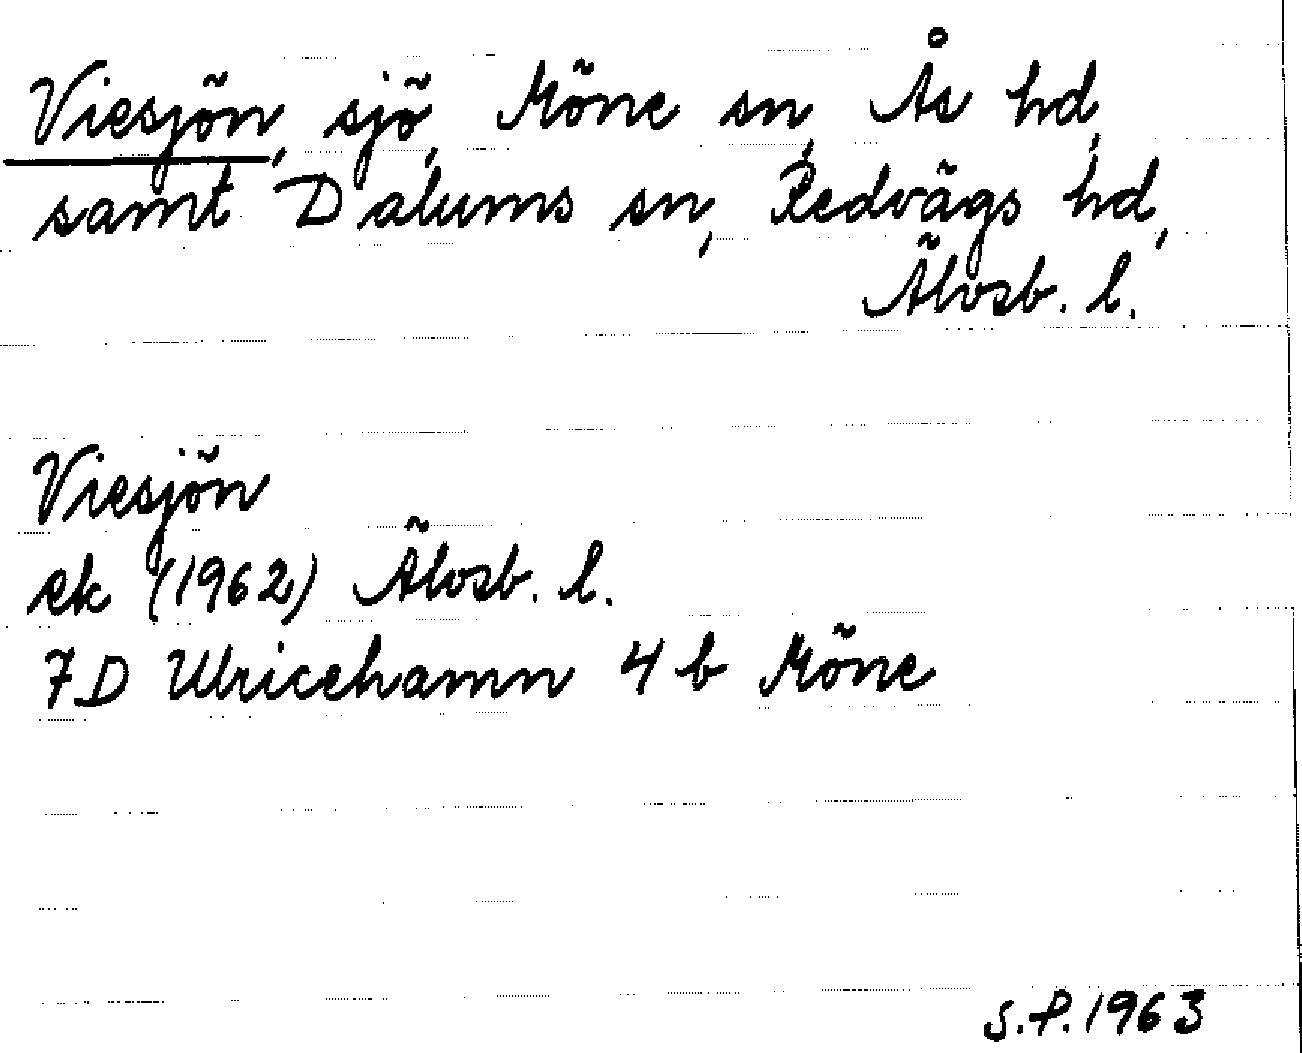 Viesjön, sjö, Möne sn, Ås hd,
samt Dalums sn, Redvägs hd,
Älvsb. l.
Viesjön
ek (1962) Älvsb. l.
7D Ulricehamn 4 b Möne
S.P. 1963